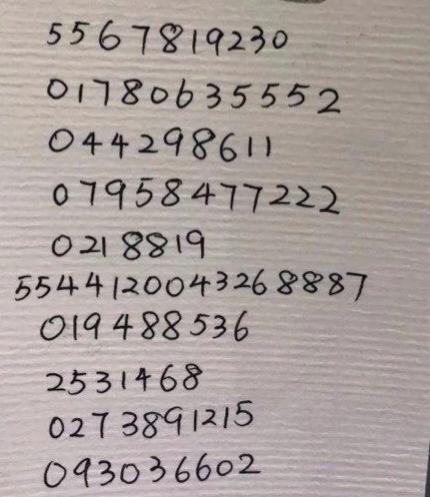 5567819230
01780635552
044298611
07958477222
0218819
5544120043268887
019488536
2531468
0273891215
093036602